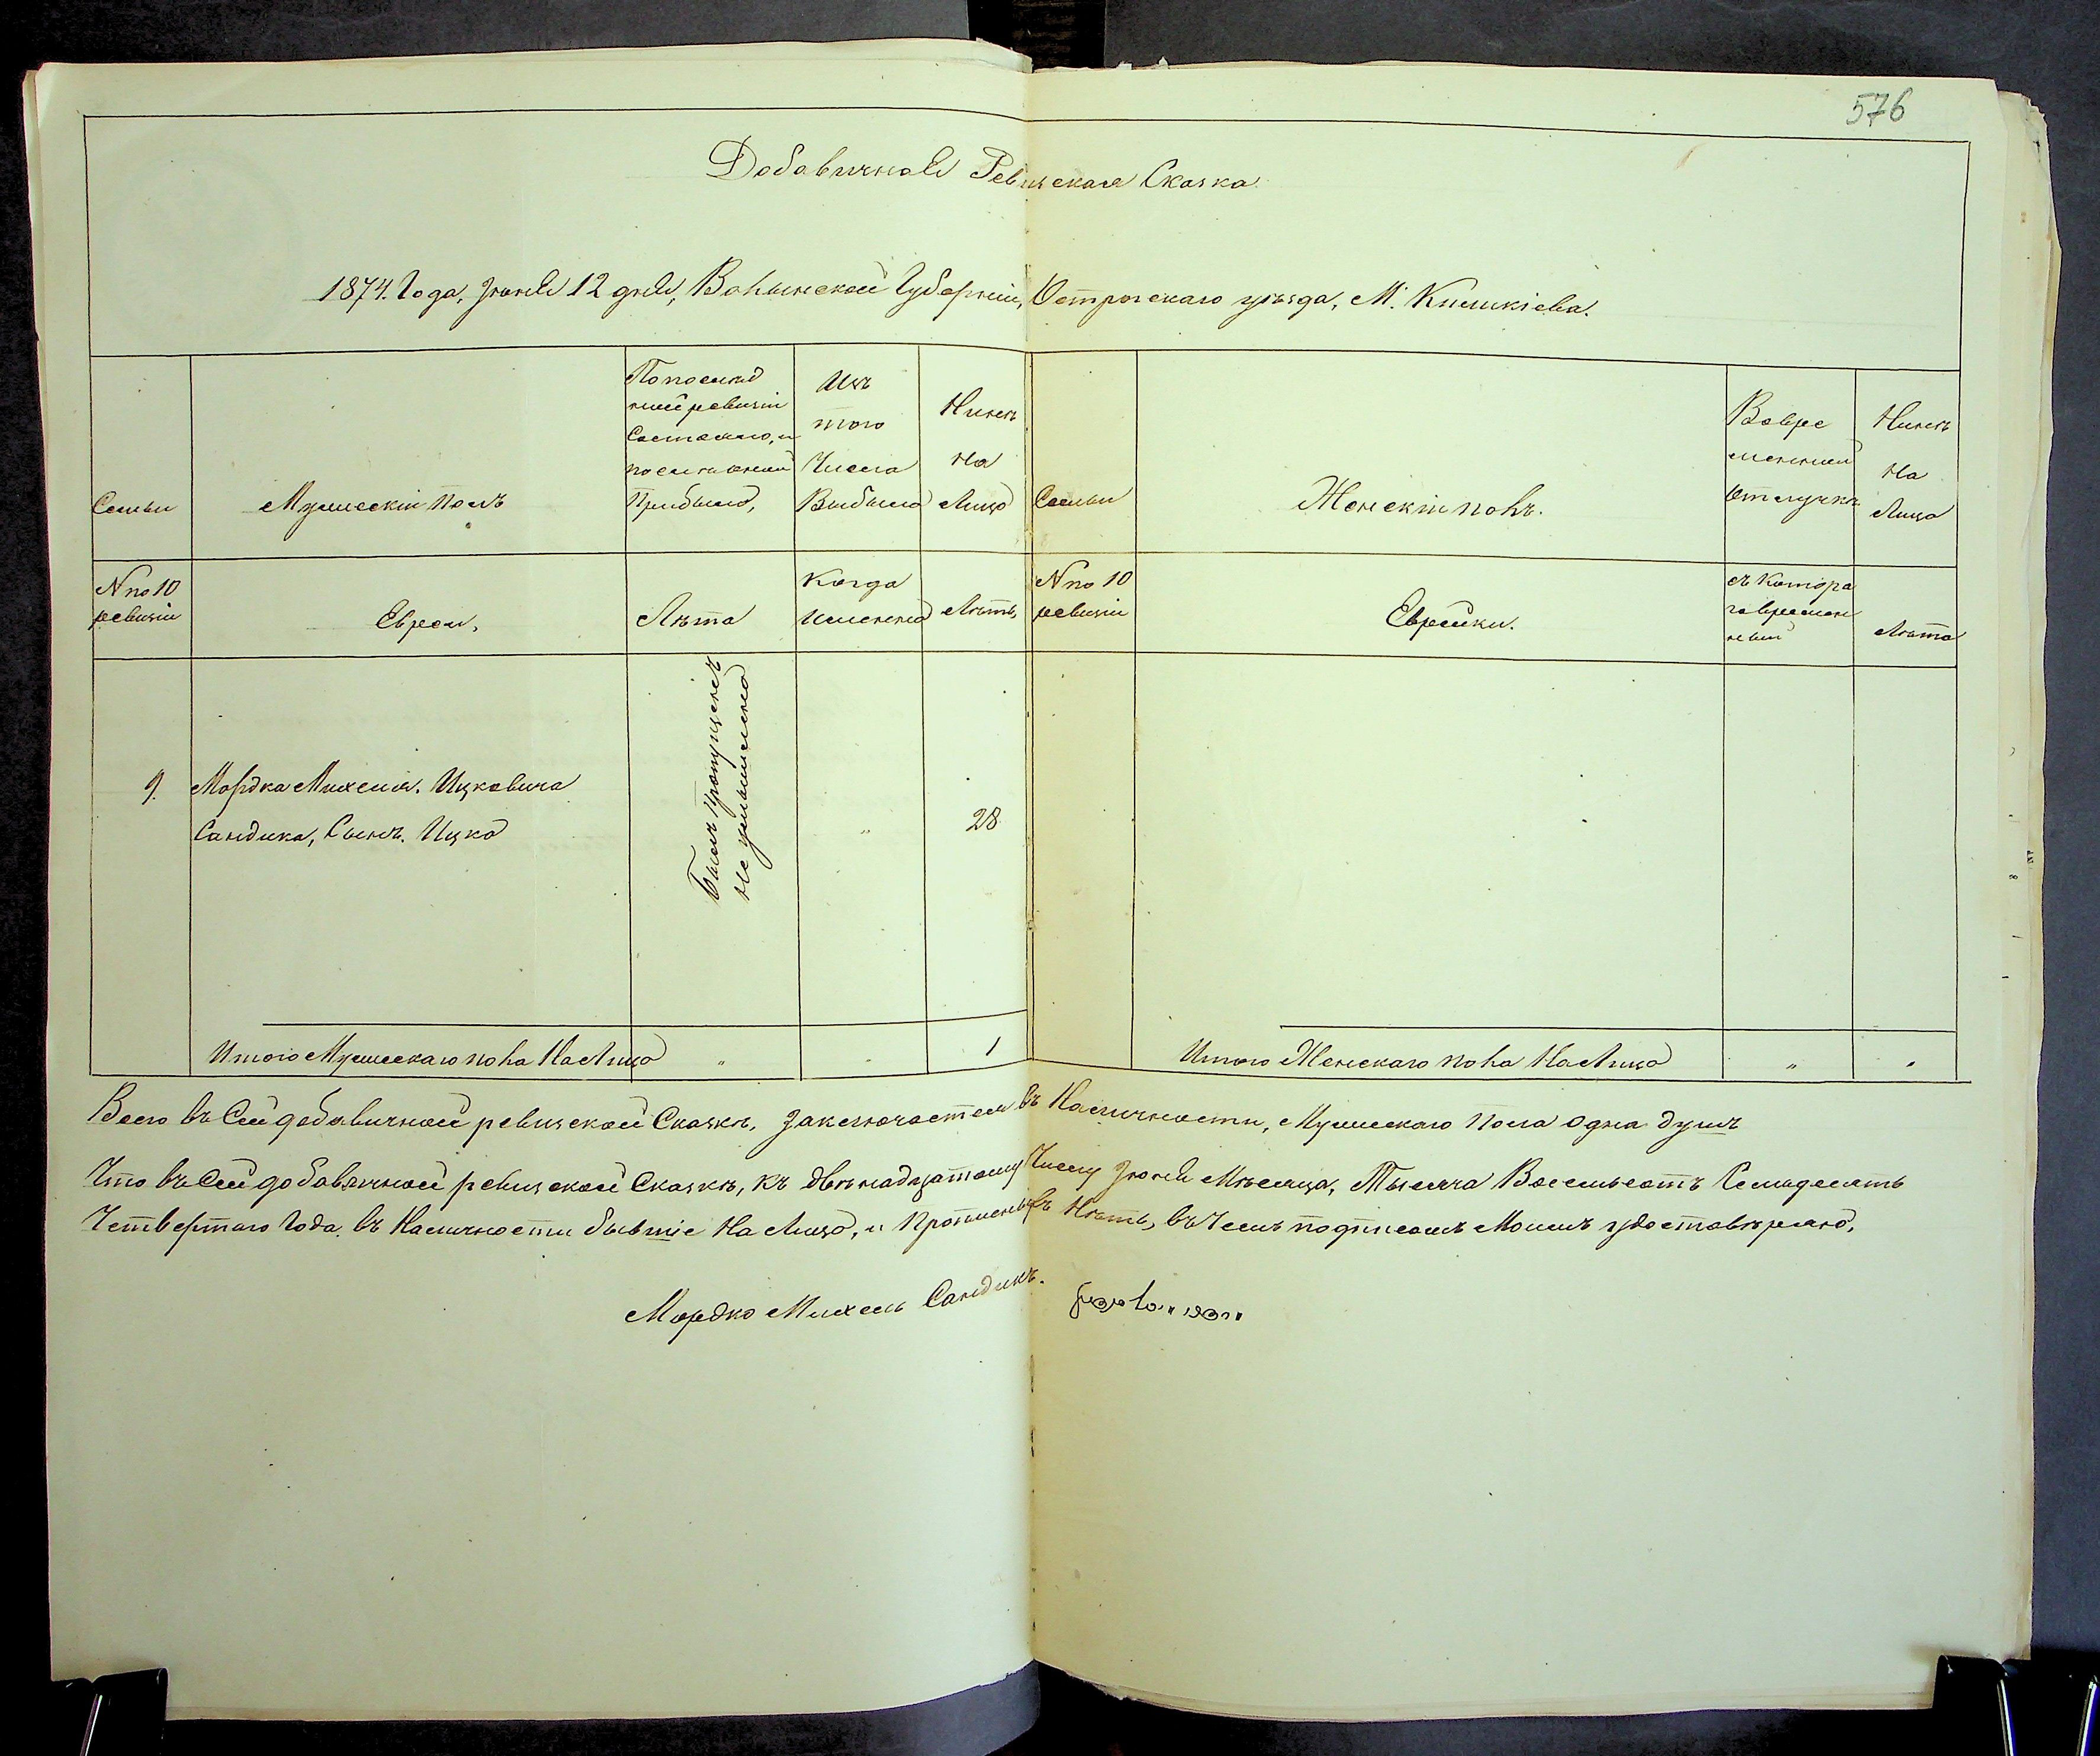 576
Добавичная Ревизская Сказка.
1874. Года, Июня 12 дня, Волынской Губерніи, Острогскаго уѣзда, М. Кишкіева.
Семьи
Мужескій полъ
По послѣд
ней ревизіи
Состояло, и
после оной
Прибыло,
Изъ
того
Числа
Выбыло
Нинѣ
На
Лицо
Семьи
Женскій полъ.
Во вре
менной
Отлучкѣ
Нинѣ
На
Лицо
N по 10
ревизіи
Евреи,
Лѣта
Когда
Именно
Лѣтъ
N по 10
ревизіи
Еврейки.
съ Котора
го времен
ной
Лѣта
9.
Мордка Михеля. Ицковича
Сандика, Сынъ. Ицко
Былъ пропущенъ
Не умышленно
"
28
Итого Мужескаго пола На Лицо
"
"
1
Итого Женскаго пола На Лицо
"
"
Всего въ Сей добавичной ревизской Сказкѣ, Заключается въ Наличности, Мужескаго пола одна душъ
Что въ Сей добавичной ревизской Сказкѣ, къ двѣнадцатому Числу Июня Мѣсяца, Тысяча Восемьсотъ Семдесятъ
Четвертаго Года. въ Наличности бывшіе На Лицо, и Прописныхъ Нѣтъ, въ Чемъ подписомъ Моимъ удостовѣряю,
Мордко Михель Сандикъ.